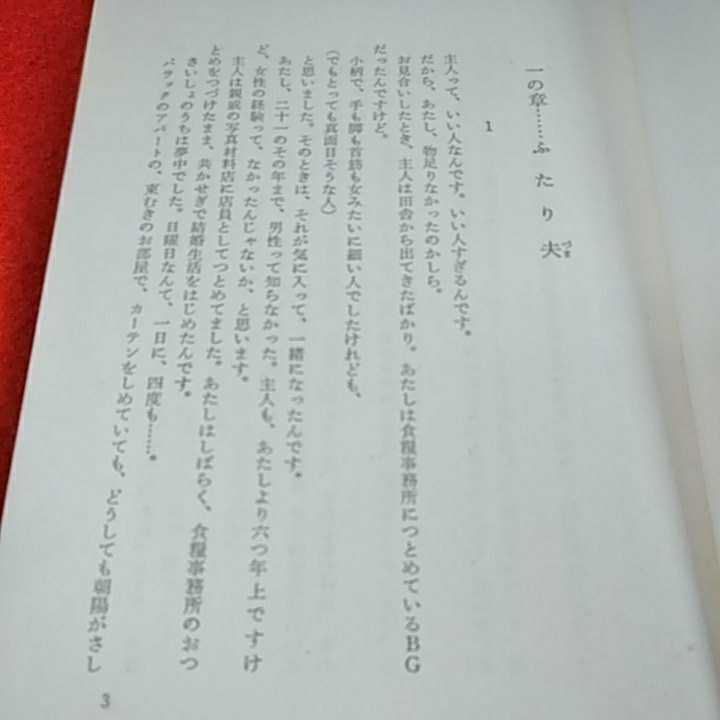 一の章……ふたり夫
づま
1
主人って、いい人なんです。いい人すぎるんです。
だから、あたし、物足りなかったのかしら。
お見合いしたとき、主人は田舎から出てきたばかり。あたしは食糧事務所につとめているBG
だったんですけど。
小柄で、手も脚も首筋も女みたいに細い人でしたけれども、
(でもとっても真面目そうな人)
と思いました。そのときは、それが気に入って、一緒になったんです。
あたし、二十一のその年まで、男性って知らなかった。主人も、あたしより六つ年上ですけ
ど、女性の経験って、なかったんじゃないか、と思います。
主人は親戚の写真材料店に店員としてつとめてました。あたしはしばらく、食糧事務所のおつ
とめをつづけたまま、共かせぎで結婚生活をはじめたんです。
さいしょのうちは夢中でした。日曜日なんて、一日に、四度も……。
バラックのアパートの、東むきのお部屋で、カーテンをしめていても、どうしても朝陽がさし
3